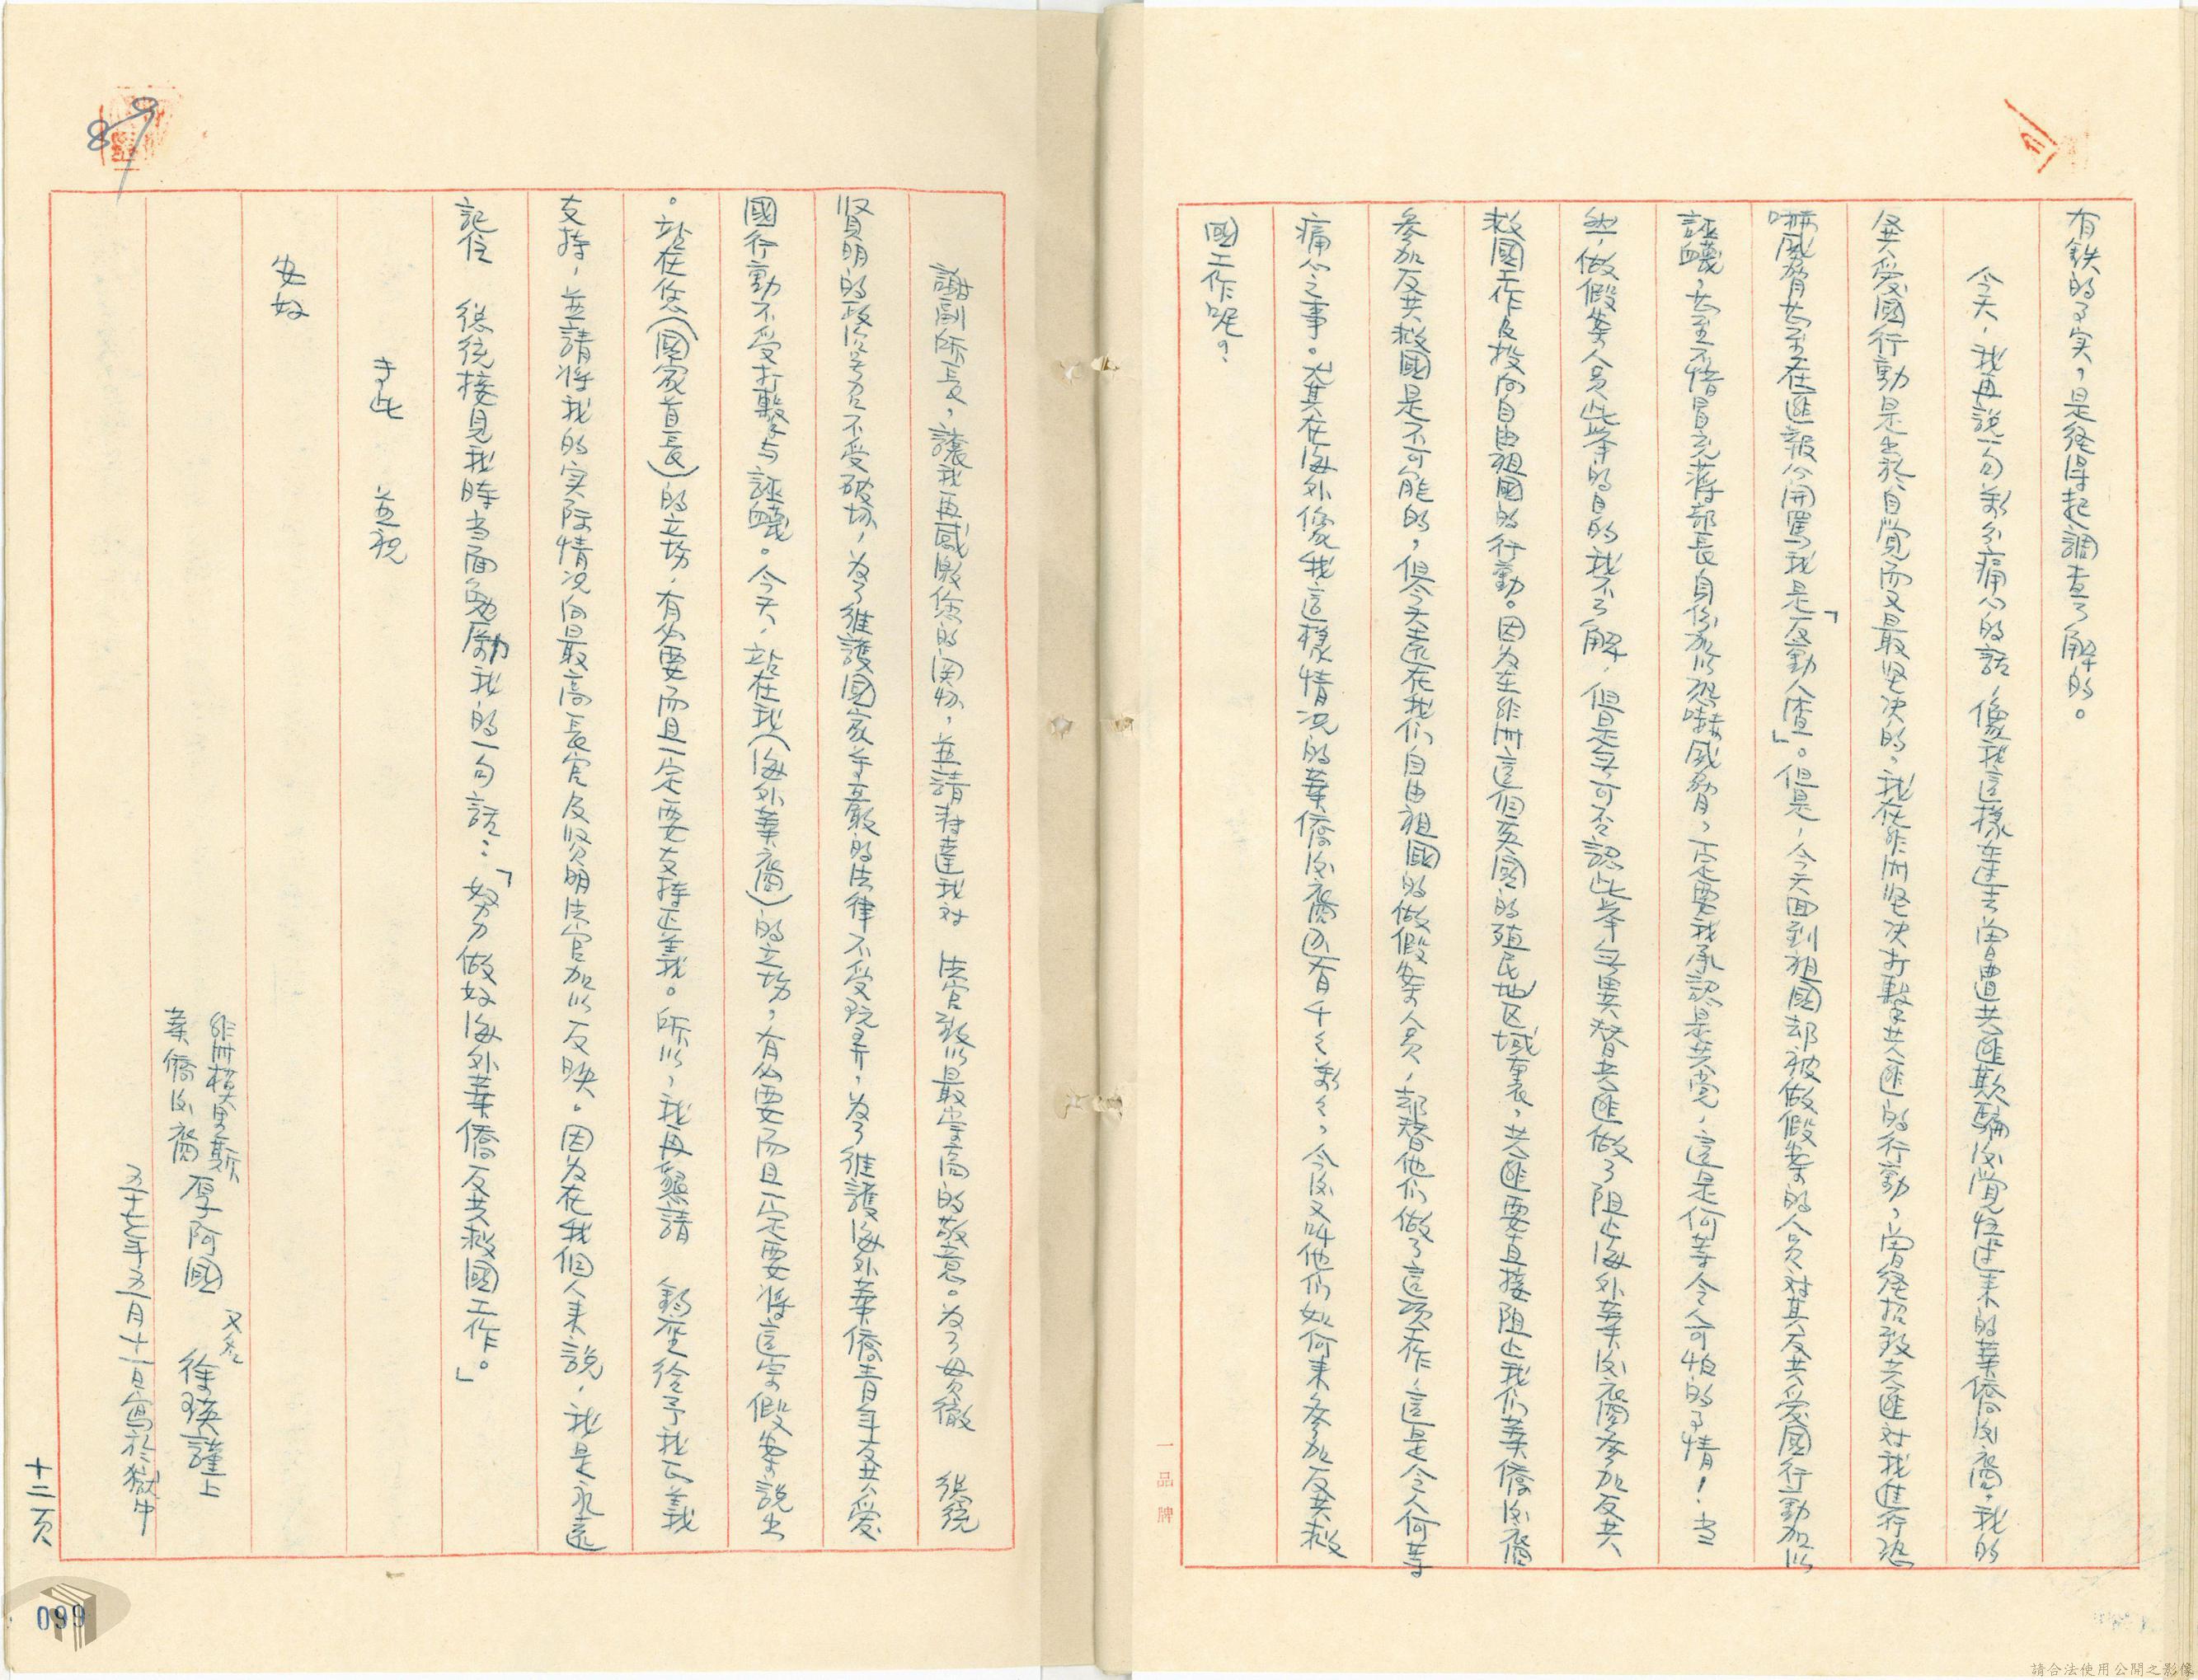 有鉄的了实，是経得起調查了解的。
今天，我再說一句萬分痛心的話，像我這樣在过去曾遭共匪欺騙後覚悟过来的華僑後裔，我的
反共愛國行動是出於自覚而又最坚决的，我在非洲坚决打擊共匪的行動，曾経招致共匪对我進行恐
嚇威脅甚至在匪報公開罵我是「反動人渣」。但是，今天回到祖國却被做假案的人员对其反共爱國行動加以
誣衊，甚至不惜冒充蒋部長身份加以恐嚇威脅，一定要我承認是共党，這是何等令人可怕的了情！当
然，做假案人员此举的目的我不了解，但是無可否認此举無異替共匪做了阻止海外華僑後裔参加反共
救國工作及投向自由祖國的行動。因为在非洲這個英國的殖民地区域裏，共匪要直接阻止我们華僑後裔
參加反共救國是不可能的，但今天遠在我们自由祖國的做假案人员，却替他们做了這项工作，這是令人何等
痛心之事。尤其在海外像我這樣情况的華僑後裔还有千千萬萬，今後又叫他们如何来参加反共救
國工作呢？
謝副所長，讓我再感激您的関切，並請轉達我对　法官致以最崇高的敬意。为了貫徹　總統
贤明的政治号召不受破坏，为了維護國家尊嚴的法律不受玩弄，为了維護海外華僑青年反共爱
國行動不受打擊与誣衊。今天，站在我（海外華裔）的立场，有必要而且一定要将這宗假案說出
。站在您（國家首長）的立场，有必要而且一定要支持正義。所以，我再懇請　鈞座给予我正義
支持，並請将我的实际情况向最高長官及贤明法官加以反映。因为在我個人来說，我是永遠
記住　總統接見我時当面勉励我的一句話：「努力做好海外華僑反共救國工作。」
专此　並祝
安好
非洲模里斯
華僑後裔　厚阿國　又名　徐瑛謹上
五十七年五月十一日寫於獄中
十二页
87
099
一品牌
請合法使用公開之影像